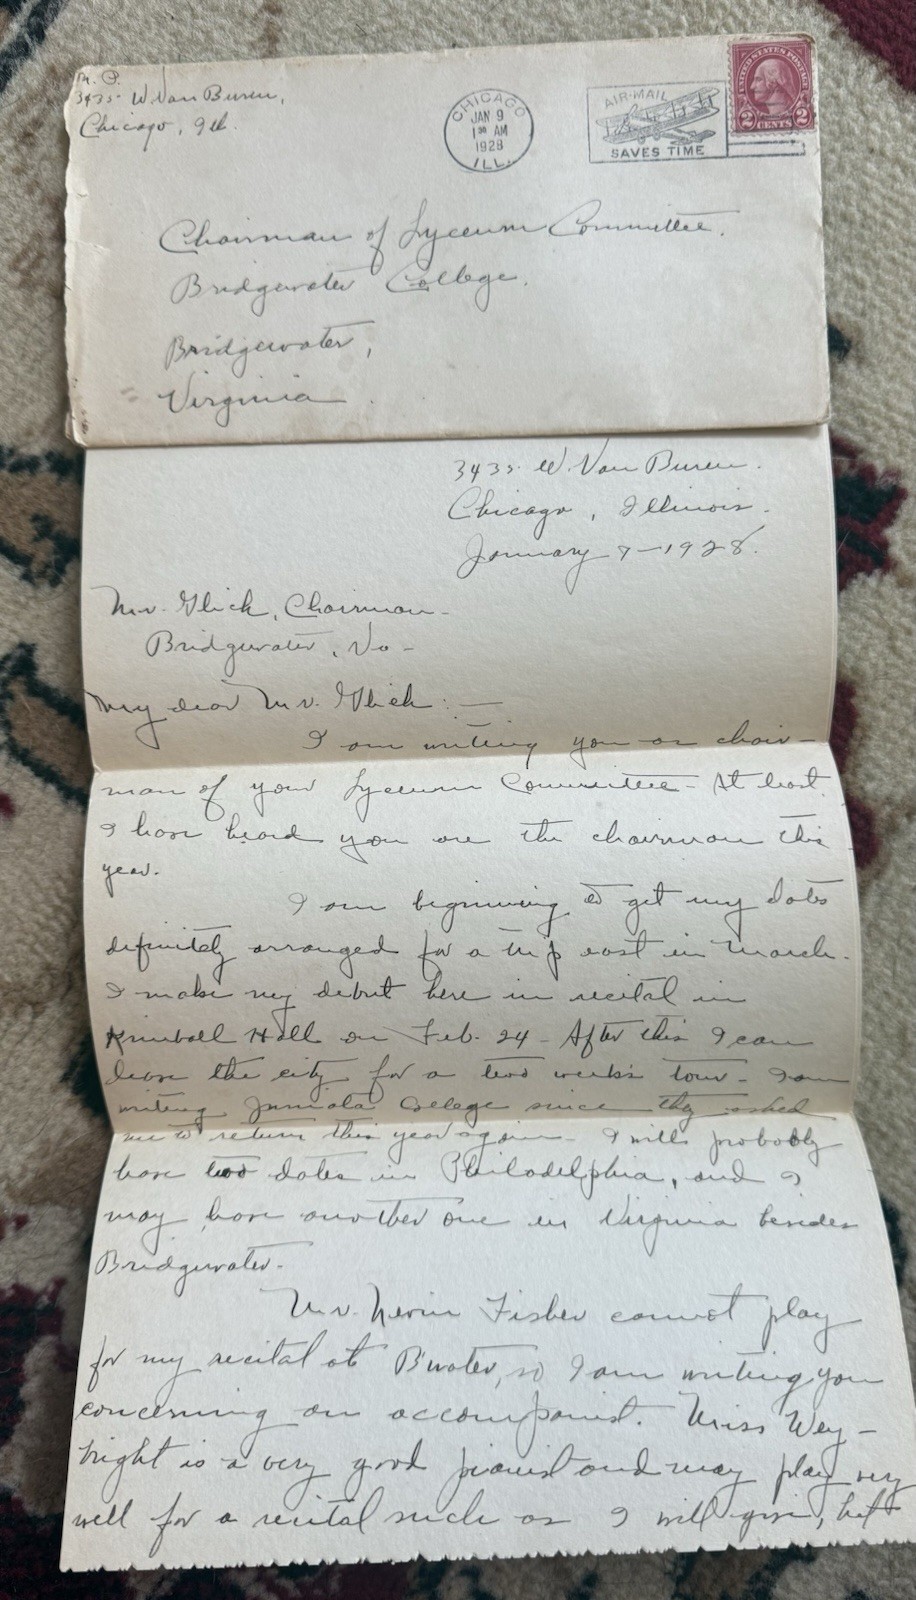 M. P.
3435 W. Van Buren,
Chicago, Ill.
CHICAGO
JAN 9
1 30 AM
1928
ILL.
AIR-MAIL
SAVES TIME
UNITED STATES POSTAGE
2 CENTS 2
Chairman of Lyceum Committee.
Bridgewater College.
Bridgewater,
Virginia.
3435 W. Van Buren.
Chicago, Illinois.
January 7-1928.
Mr. Glick, Chairman-
Bridgewater, Va-
My dear Mr. Glick:-
I am writing you as chair-
man of your Lyceum Committee- At least
I have heard you are the chairman this
year.
I am beginning to get my dates
definitely arranged for a trip east in March.
I make my debut here in recital in
Kimball Hall on Feb. 24- After this I can
leave the city for a two weeks tour- I am
writing Juniata College since they asked
me to return this year again- I will probably
have two dates in Philadelphia, and I
may have another one in Virginia besides
Bridgewater-
Mr. Nevin Fisher cannot play
for my recital at B'water, so I am writing you
concerning an accompanist. Miss Wey-
bright is a very good pianist and may play very
well for a recital such as I will give, but